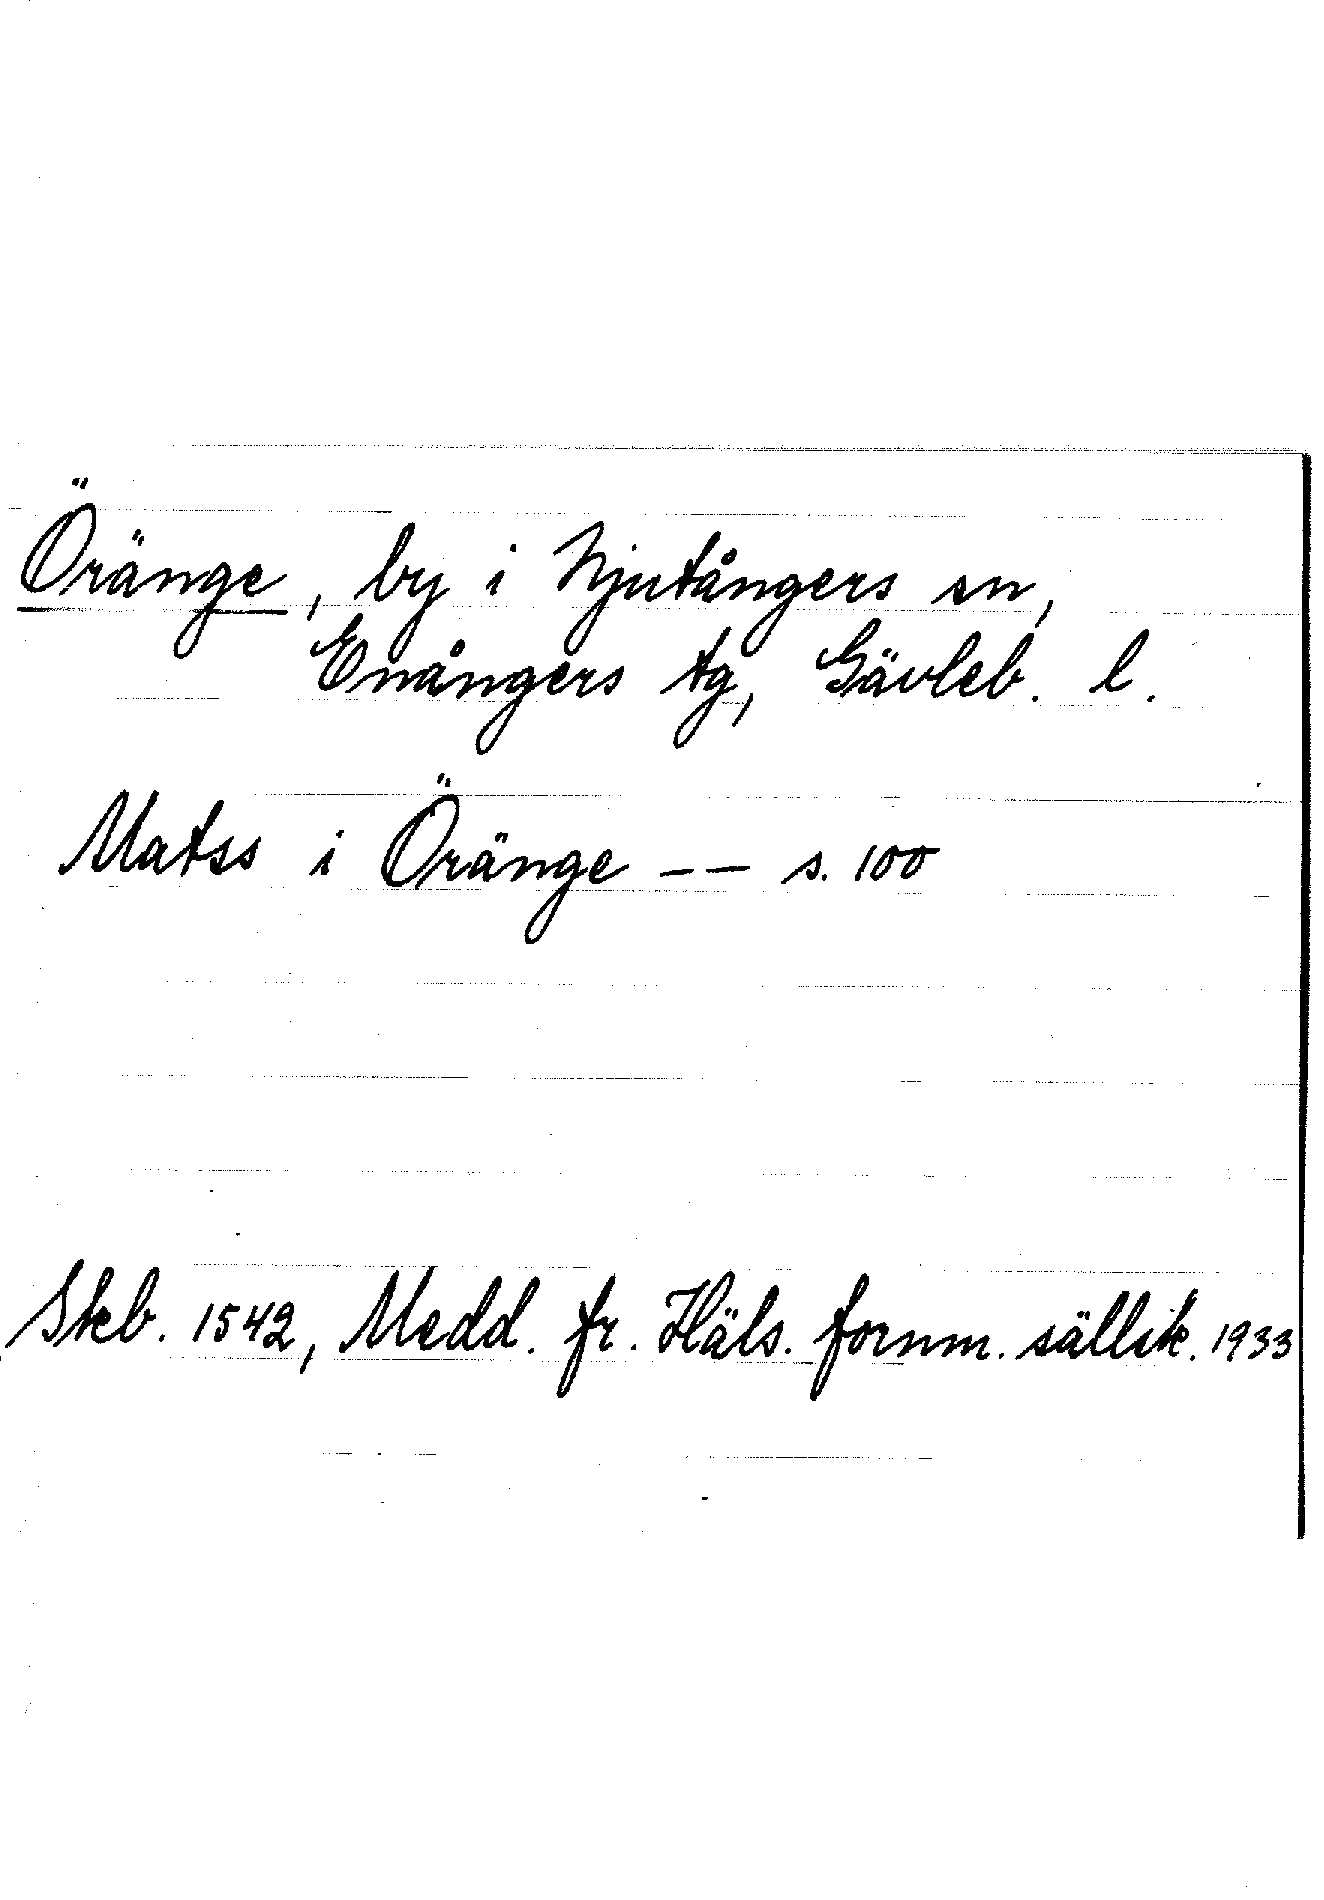 Öränge, by i Njutångers sn,
Enångers tg, Gävleb. l.
Matss i Öränge -- s. 100
Skb. 1542, Medd. fr. Häls. fornm. sällsk. 1933